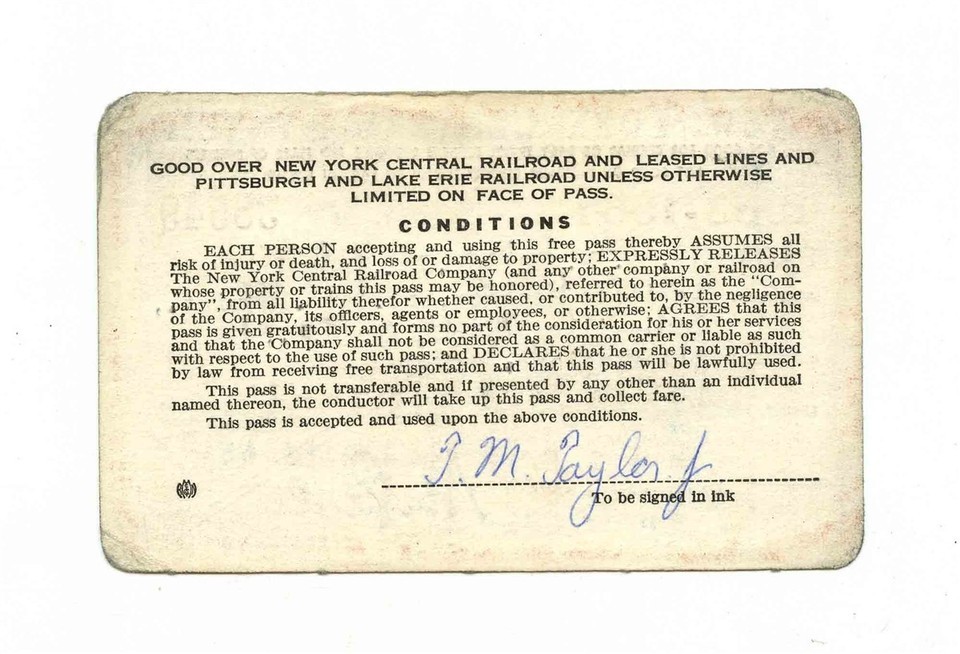 GOOD OVER NEW YORK CENTRAL RAILROAD AND LEASED LINES AND
PITTSBURGH AND LAKE ERIE RAILROAD UNLESS OTHERWISE
LIMITED ON FACE OF PASS.
CONDITIONS
EACH PERSON accepting and using this free pass thereby ASSUMES all
risk of injury or death, and loss of or damage to property; EXPRESSLY RELEASES
The New York Central Railroad Company (and any other company or railroad on
whose property or trains this pass may be honored), referred to herein as the “Com-
pany”, from all liability therefor whether caused, or contributed to, by the negligence
of the Company, its officers, agents or employees, or otherwise; AGREES that this
pass is given gratuitously and forms no part of the consideration for his or her services
and that the Company shall not be considered as a common carrier or liable as such
with respect to the use of such pass; and DECLARES that he or she is not prohibited
by law from receiving free transportation and that this pass will be lawfully used.
This pass is not transferable and if presented by any other than an individual
named thereon, the conductor will take up this pass and collect fare.
This pass is accepted and used upon the above conditions.
T. M. Taylor Jr
To be signed in ink